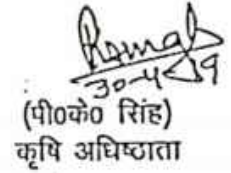 30-4-19
(पी०के० सिंह)
कृषि अधिष्ठाता